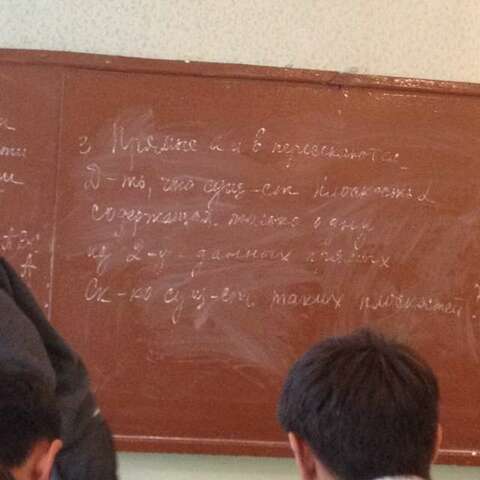 3 Прямые a и b пересекаются.
Д-ть, что сущ-ет плоскость α
содержащая только одну
из 2-у данных прямых
Ск-ко сущ-ет таких плоскостей
А